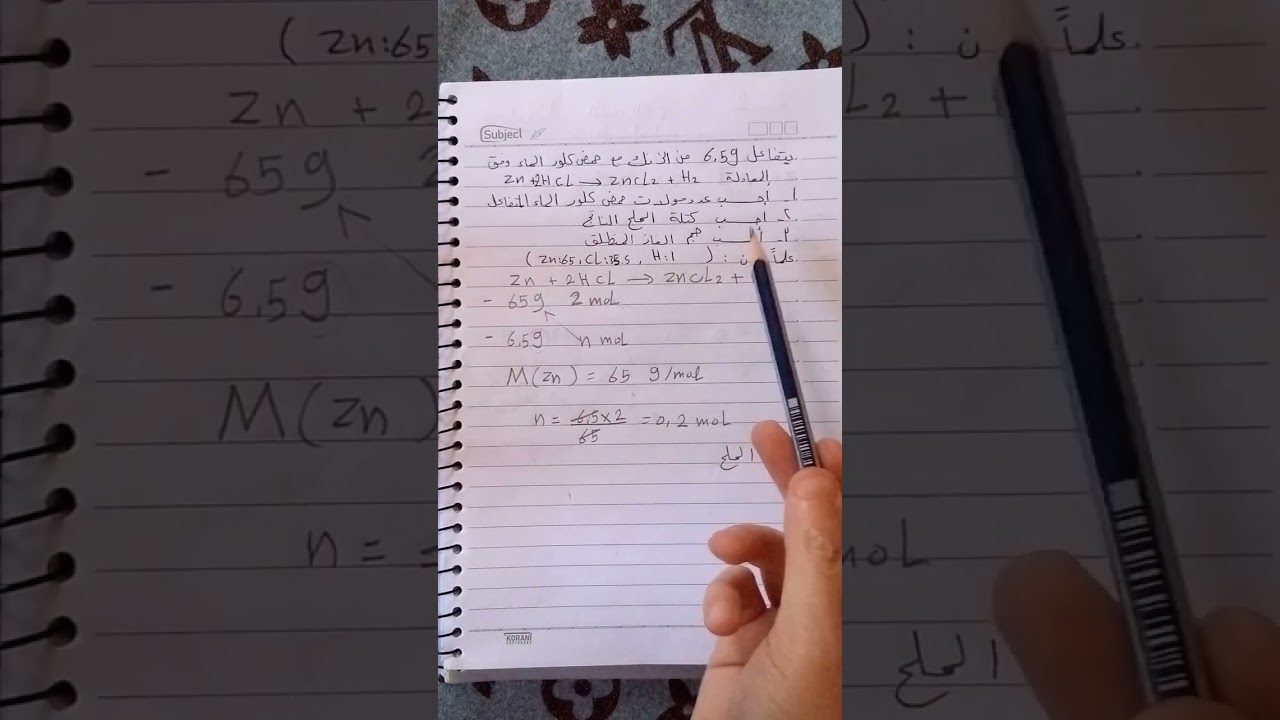 Subject
يتفاعل 6,5g من الزنك مع حمض كلور الماء وفق
المعادلة Zn+2HCL → ZnCL2 + H2
1ـ احسب عدد مولات حمض كلور الماء المتفاعل
2ـ احسب كتلة الملح الناتج
3ـ أحسب حجم الغاز المنطلق
علماً أن : (Zn:65, CL:35,5, H:1)
Zn + 2HCL → ZnCL2 +
- 65g 2 mol
- 6,5g n mol
M(Zn) = 65 g/mol
n = 6,5×2/65 = 0,2 moL
الملح
KORANI